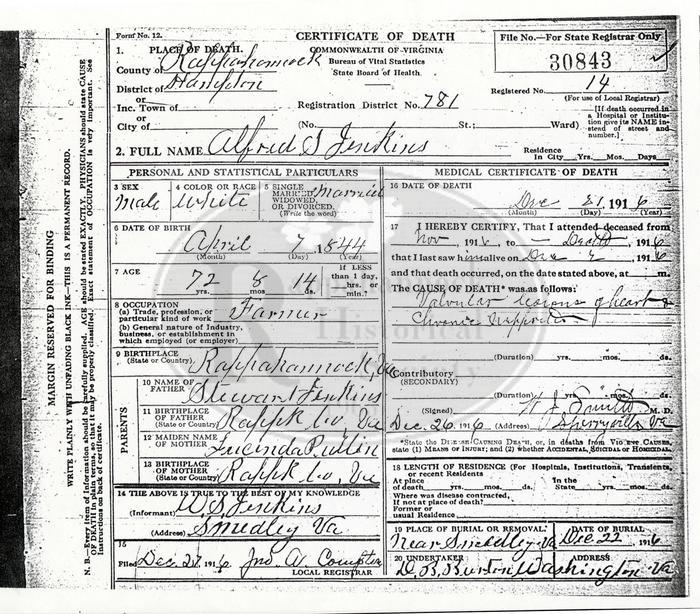 Form No. 12.
CERTIFICATE OF DEATH
COMMONWEALTH OF VIRGINIA
Bureau of Vital Statistics
State Board of Health.
File No.—For State Registrar Only
30843
Registered No. 14
(For use of Local Registrar)
[If death occurred in a Hospital or Institution give its NAME instead of street and number.]
1. PLACE OF DEATH.
County of Rappahannock
District of Hampton
or
Inc. Town of
or
City of
Registration District No. 781
(No. St.; Ward)
2. FULL NAME Alfred S Jenkins
Residence
In City Yrs. Mos. Days
PERSONAL AND STATISTICAL PARTICULARS
3 SEX
Male
4 COLOR OR RACE
White
5 SINGLE, MARRIED, WIDOWED, OR DIVORCED.
(Write the word)
Married
6 DATE OF BIRTH
April 7, 1844
(Month) (Day) (Year)
7 AGE
72 yrs. 8 mos. 14 ds.
If LESS than 1 day, hrs. or min.?
8 OCCUPATION
(a) Trade, profession, or particular kind of work Farmer
(b) General nature of Industry, business, or establishment in which employed (or employer)
9 BIRTHPLACE
(State or Country) Rappahannock, Va
PARENTS
10 NAME OF FATHER Stewart Jenkins
11 BIRTHPLACE OF FATHER
(State or Country) Rappk Co, Va
12 MAIDEN NAME OF MOTHER Lucinda Pullin
13 BIRTHPLACE OF MOTHER
(State or Country) Rappk Co, Va
14 THE ABOVE IS TRUE TO THE BEST OF MY KNOWLEDGE
(Informant) W. S. Jenkins
(Address) Smedley Va
15
Filed Dec. 27 1916 Jno. A. Compton
LOCAL REGISTRAR
MEDICAL CERTIFICATE OF DEATH
16 DATE OF DEATH
Dec 21 1916
(Month) (Day) (Year)
17 I HEREBY CERTIFY, That I attended deceased from
Nov, 1916, to Dec, 1916
that I last saw him alive on Dec, 1916
and that death occurred, on the date stated above, at m.
The CAUSE OF DEATH* was as follows:
Valvular lesions of heart &
Chronic
(Duration) yrs. mos. ds.
Contributory
(SECONDARY)
(Duration) yrs. mos. ds.
(Signed) W. J. M. D.
Dec. 26 1916 (Address) Sperryville Va
*State the DISEASE CAUSING DEATH, or, in deaths from VIOLENT CAUSES, state (1) MEANS OF INJURY; and (2) whether ACCIDENTAL, SUICIDAL OR HOMICIDAL.
18 LENGTH OF RESIDENCE (For Hospitals, Institutions, Transients, or recent Residents
At place of death yrs. mos. ds. In the State yrs. mos. ds.
Where was disease contracted, if not at place of death?
Former or usual Residence
19 PLACE OF BURIAL OR REMOVAL
near Smedley Va
DATE OF BURIAL
Dec. 22, 1916
20 UNDERTAKER
D. B. Burton
ADDRESS
Washington Va
MARGIN RESERVED FOR BINDING
WRITE PLAINLY WITH UNFADING BLACK INK—THIS IS A PERMANENT RECORD.
N. B.—Every item of information should be carefully supplied. AGE should be stated EXACTLY. PHYSICIANS should state CAUSE OF DEATH in plain terms, so that it may be properly classified. Exact statement of OCCUPATION is very important. See Instructions on back of certificate.